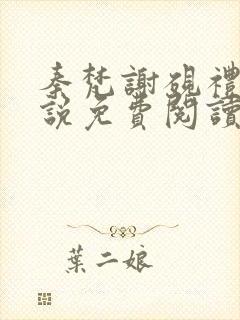 秦梵謝硯禮
說免費閱讀
葉二娘